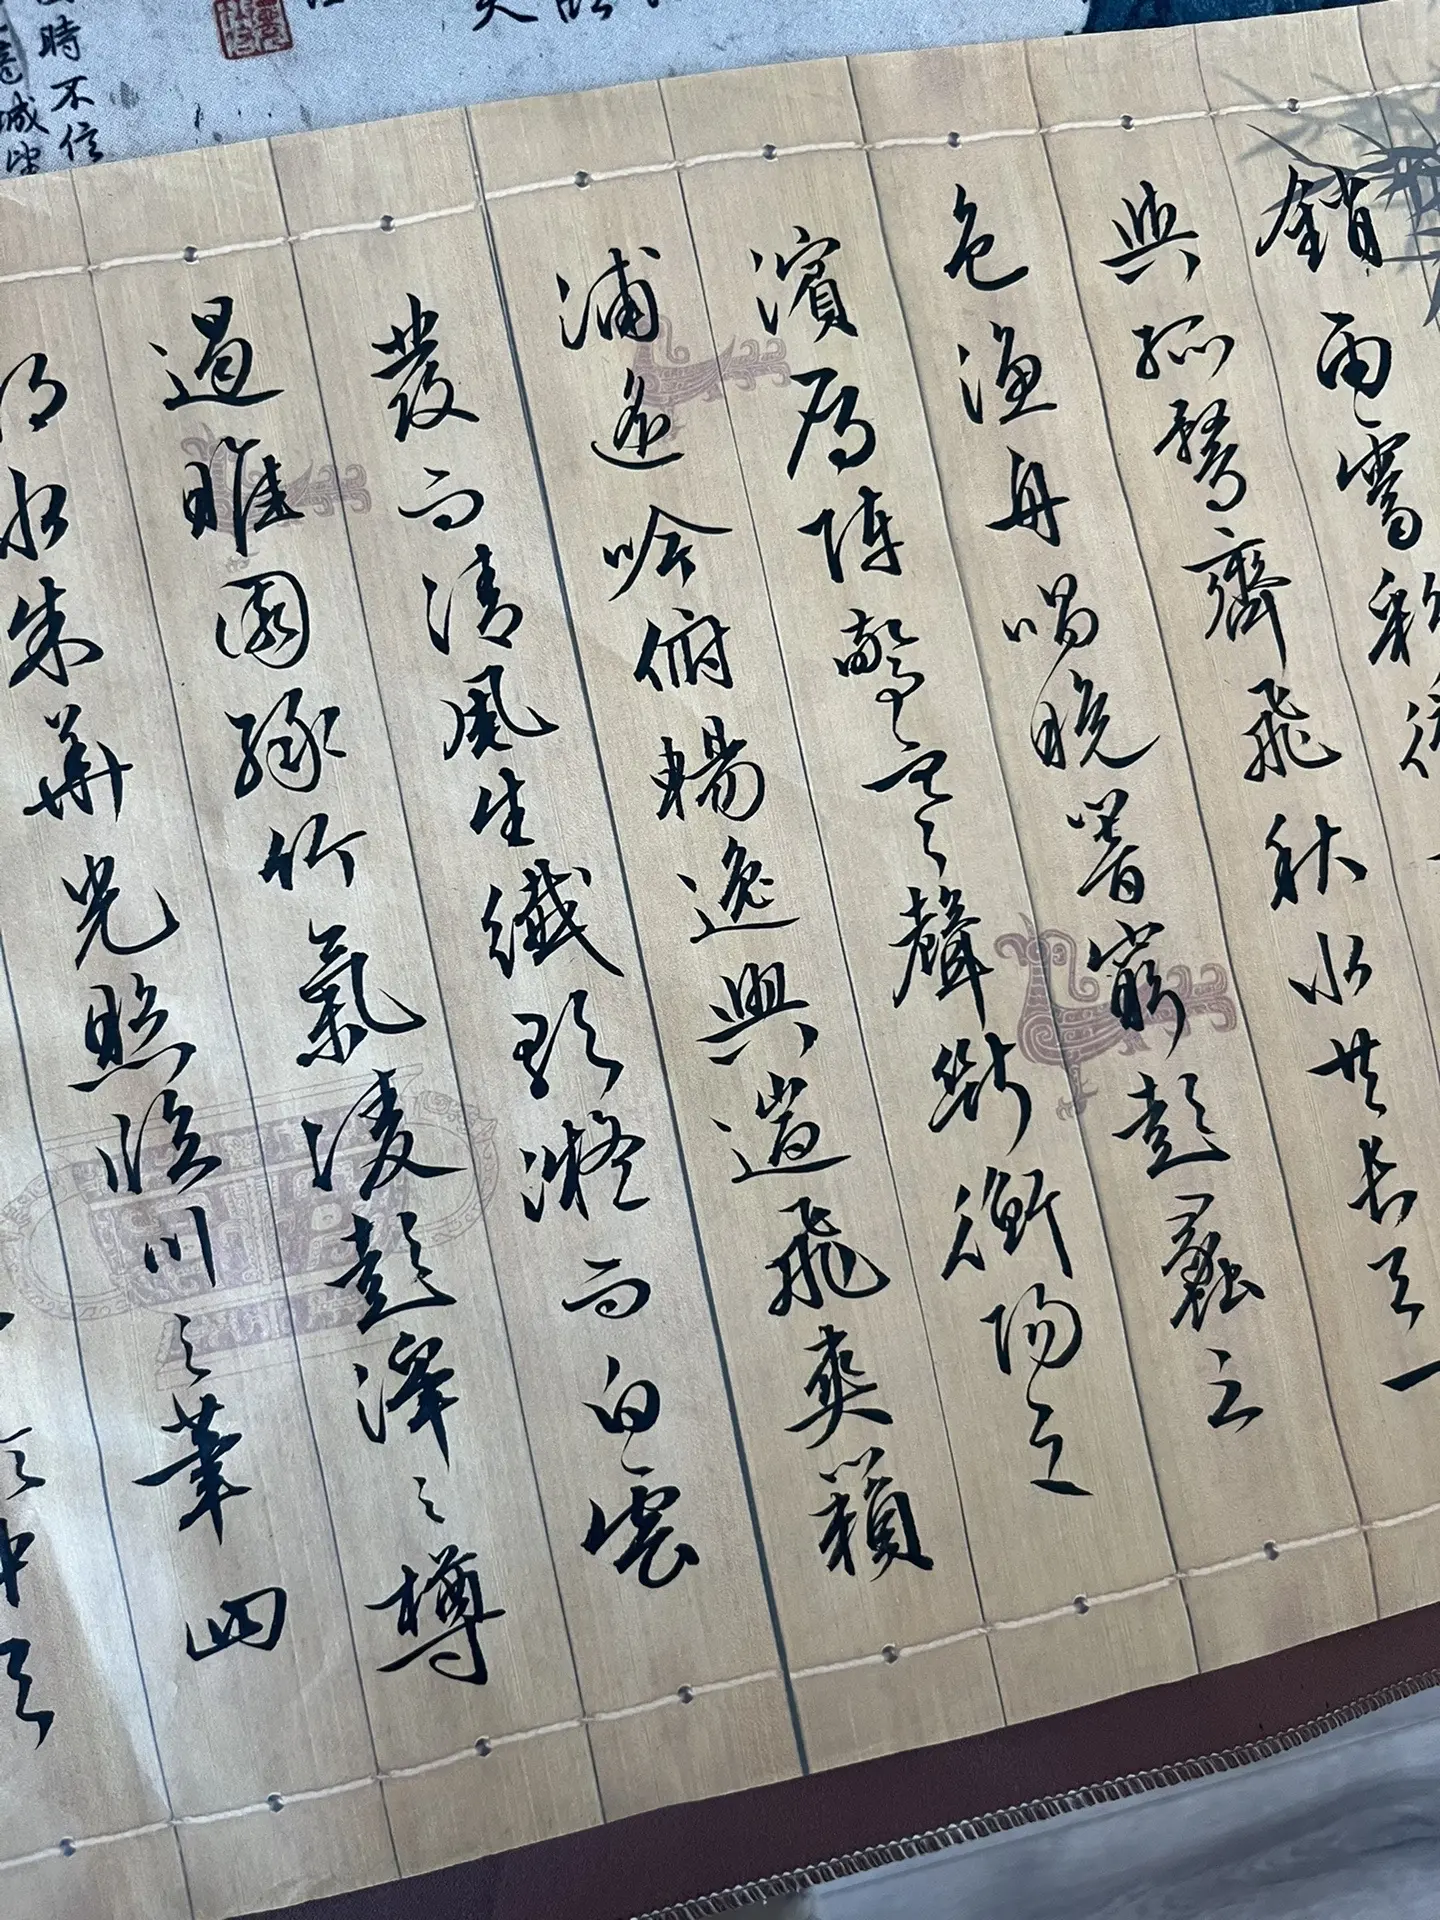 銷雨霽彩徹
與孤鶩齊飛秋水共長天一
色漁舟唱晚響窮彭蠡之
濱雁陣驚寒聲斷衡陽之
浦遙吟俯暢逸興遄飛爽籟
發而清風生纖歌凝而白雲
遏睢園綠竹氣凌彭澤之樽
鄴水朱華光照臨川之筆四
時不信
城